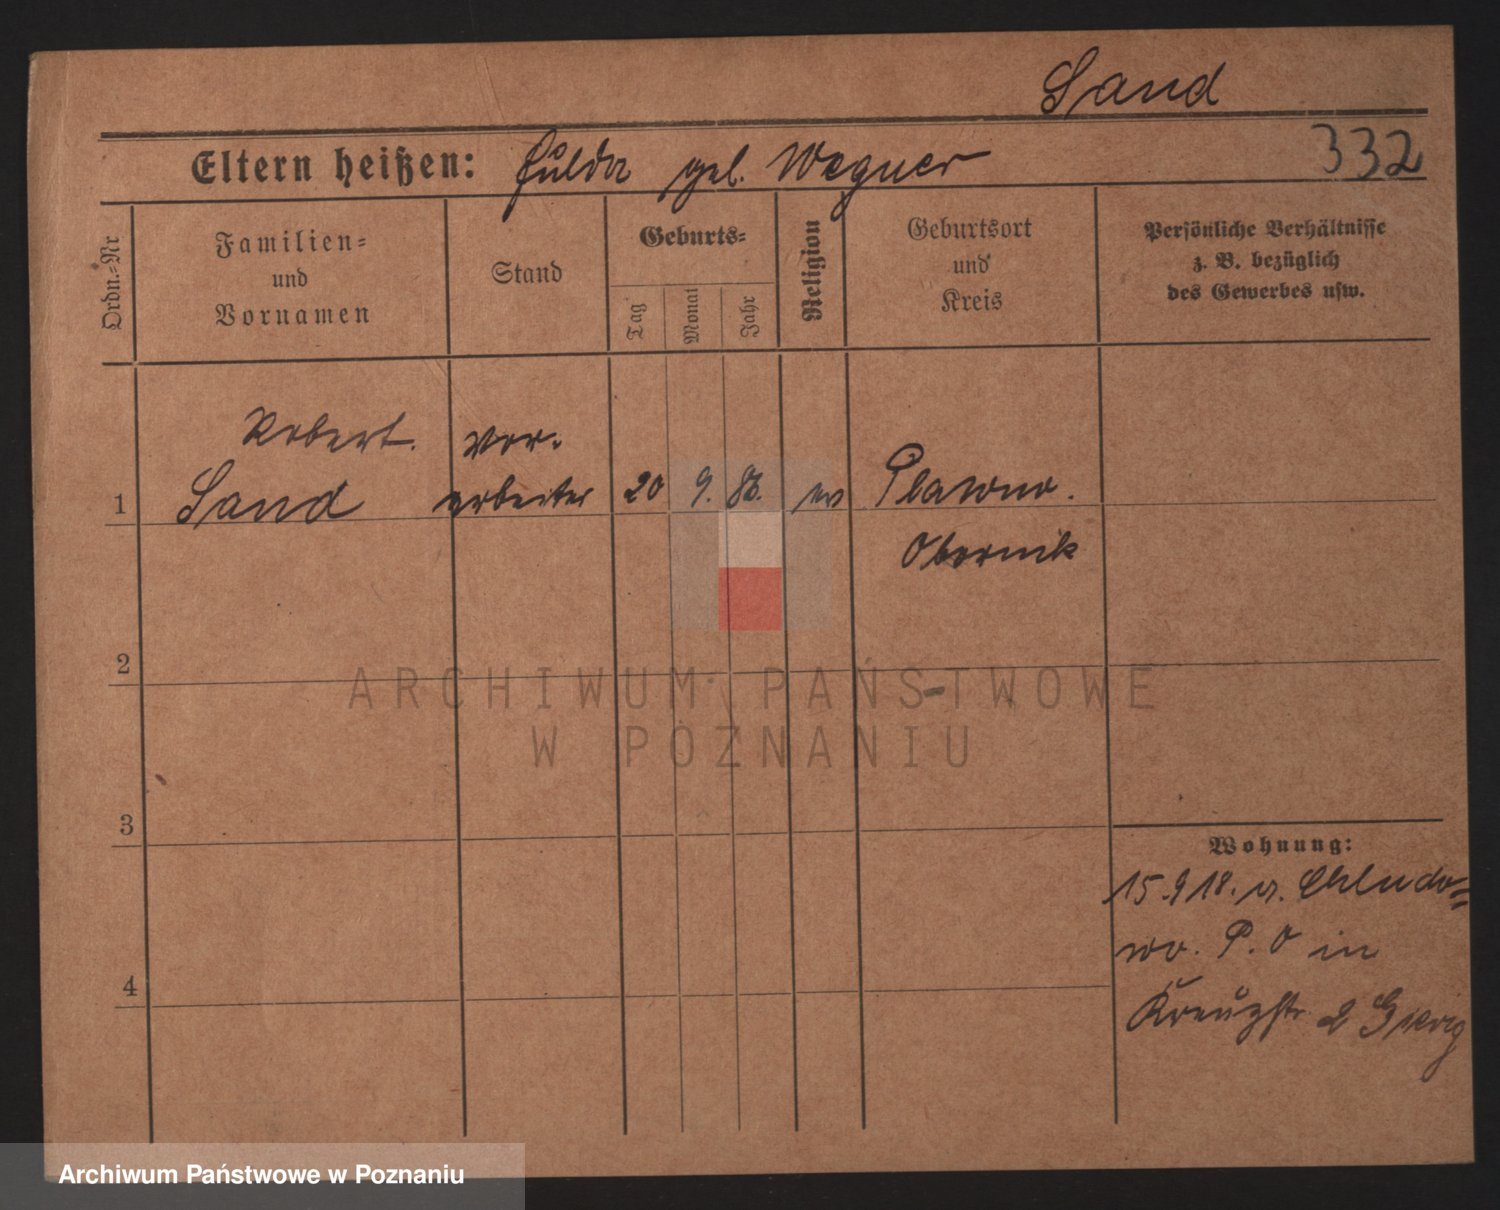 Sand
Eltern heißen: Hulda geb. Wegner
332
Ordn.-Nr
Familien-
und
Vornamen
Stand
Geburts-
Tag
Monat
Jahr
Religion
Geburtsort
und
Kreis
Persönliche Verhältnisse
z. B. bezüglich
des Gewerbes usw.
Robert.
Vor-
1 Sand arbeiter 20 9. ev
Obornik
2
3
4
ARCHIWUM PAŃSTWOWE
W POZNANIU
Wohnung:
15.9.18. v. Chludo=
wo. P. O in
Kreuzstr. 2
Archiwum Państwowe w Poznaniu